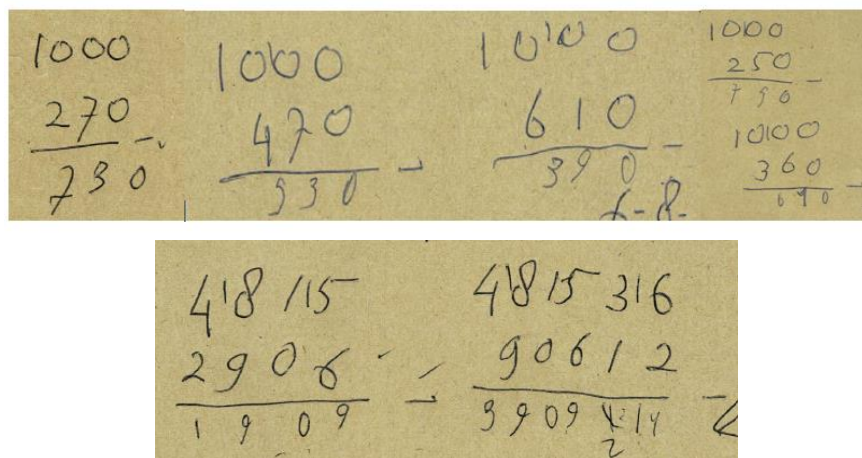 1000
270 -
730
1000
470 -
930
10'00
610 -
390
6-8-
1000
250 -
790
10'00
360 -
690
4'8115
2906 -
1909
4'8153'6
90612 -
3909
2